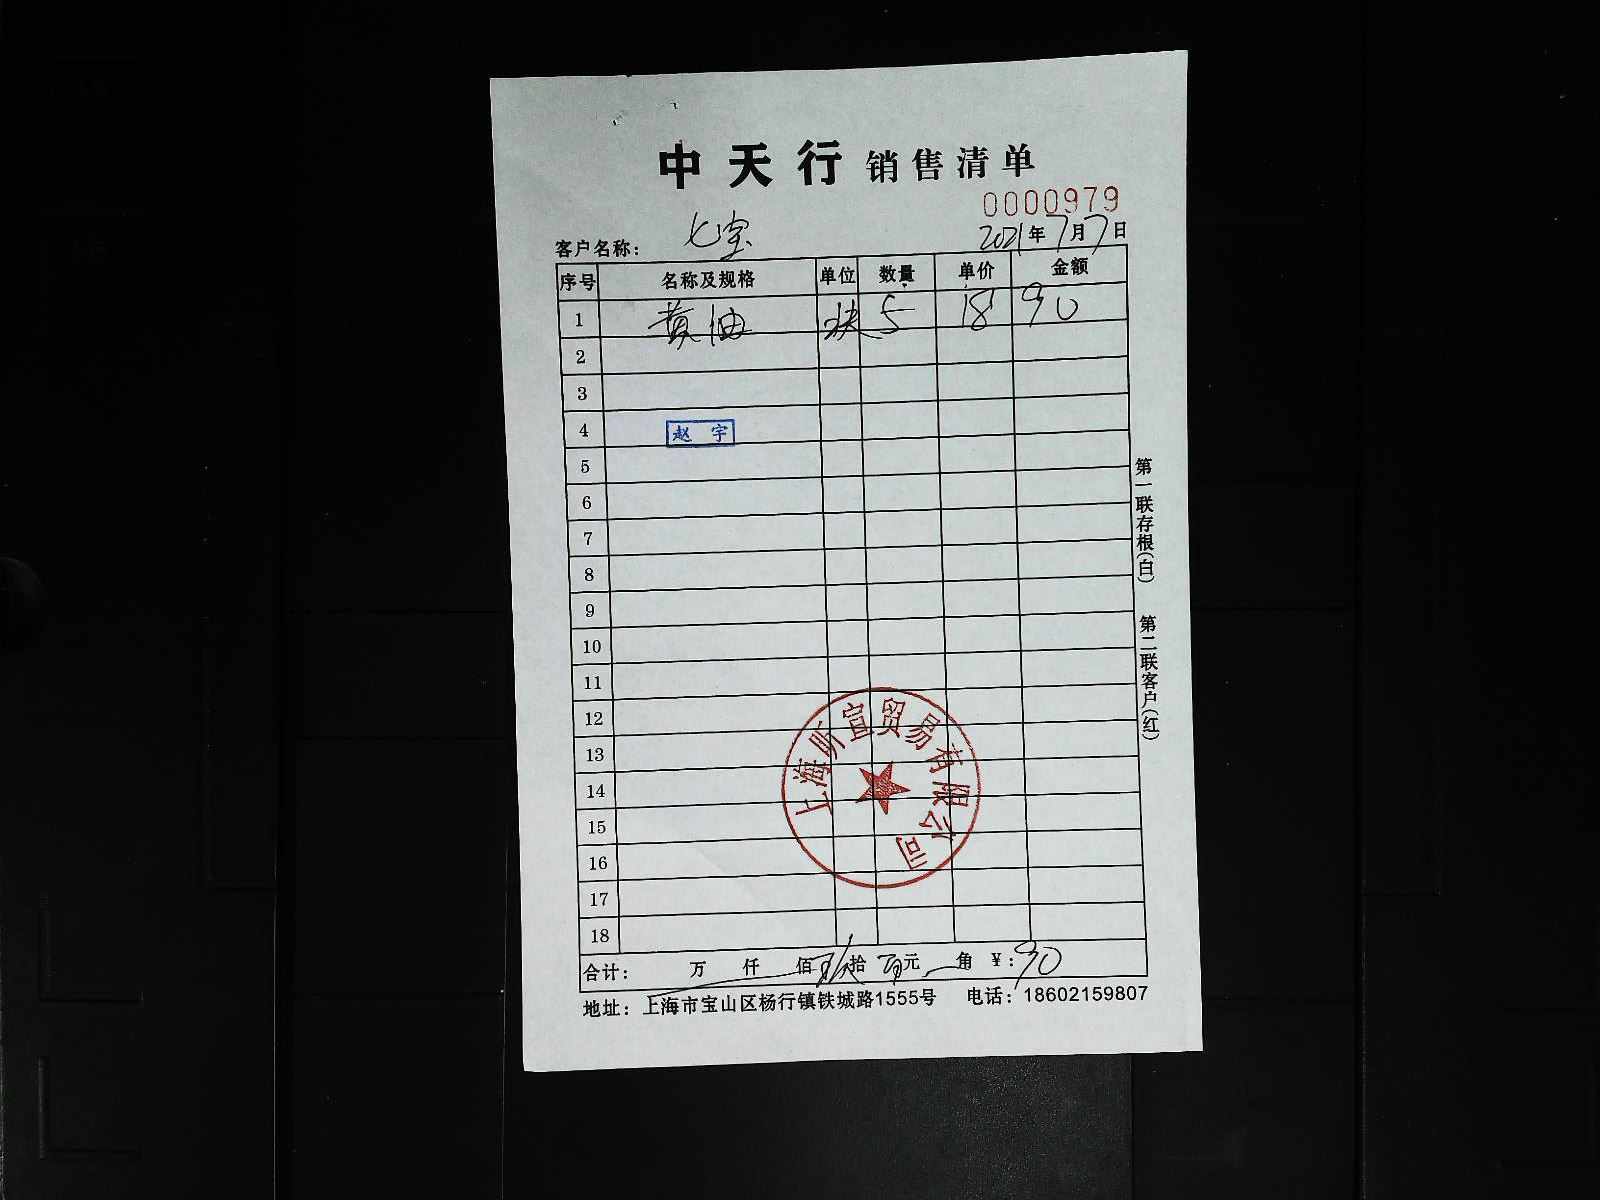 中天行 销售清单
0000979
客户名称： 七宝 2021年7月7日
序号 名称及规格 单位 数量 单价 金额
1 黄油 块 5 18 90
2
3
4 赵宇
5
6
7
8
9
10
11
12
13
14
15
16
17
18
上海昕宣贸易有限公司
合计： 万 仟 佰 玖拾 零元 角 ￥：90
地址：上海市宝山区杨行镇铁城路1555号 电话：18602159807
第一联存根(白) 第二联客户(红)